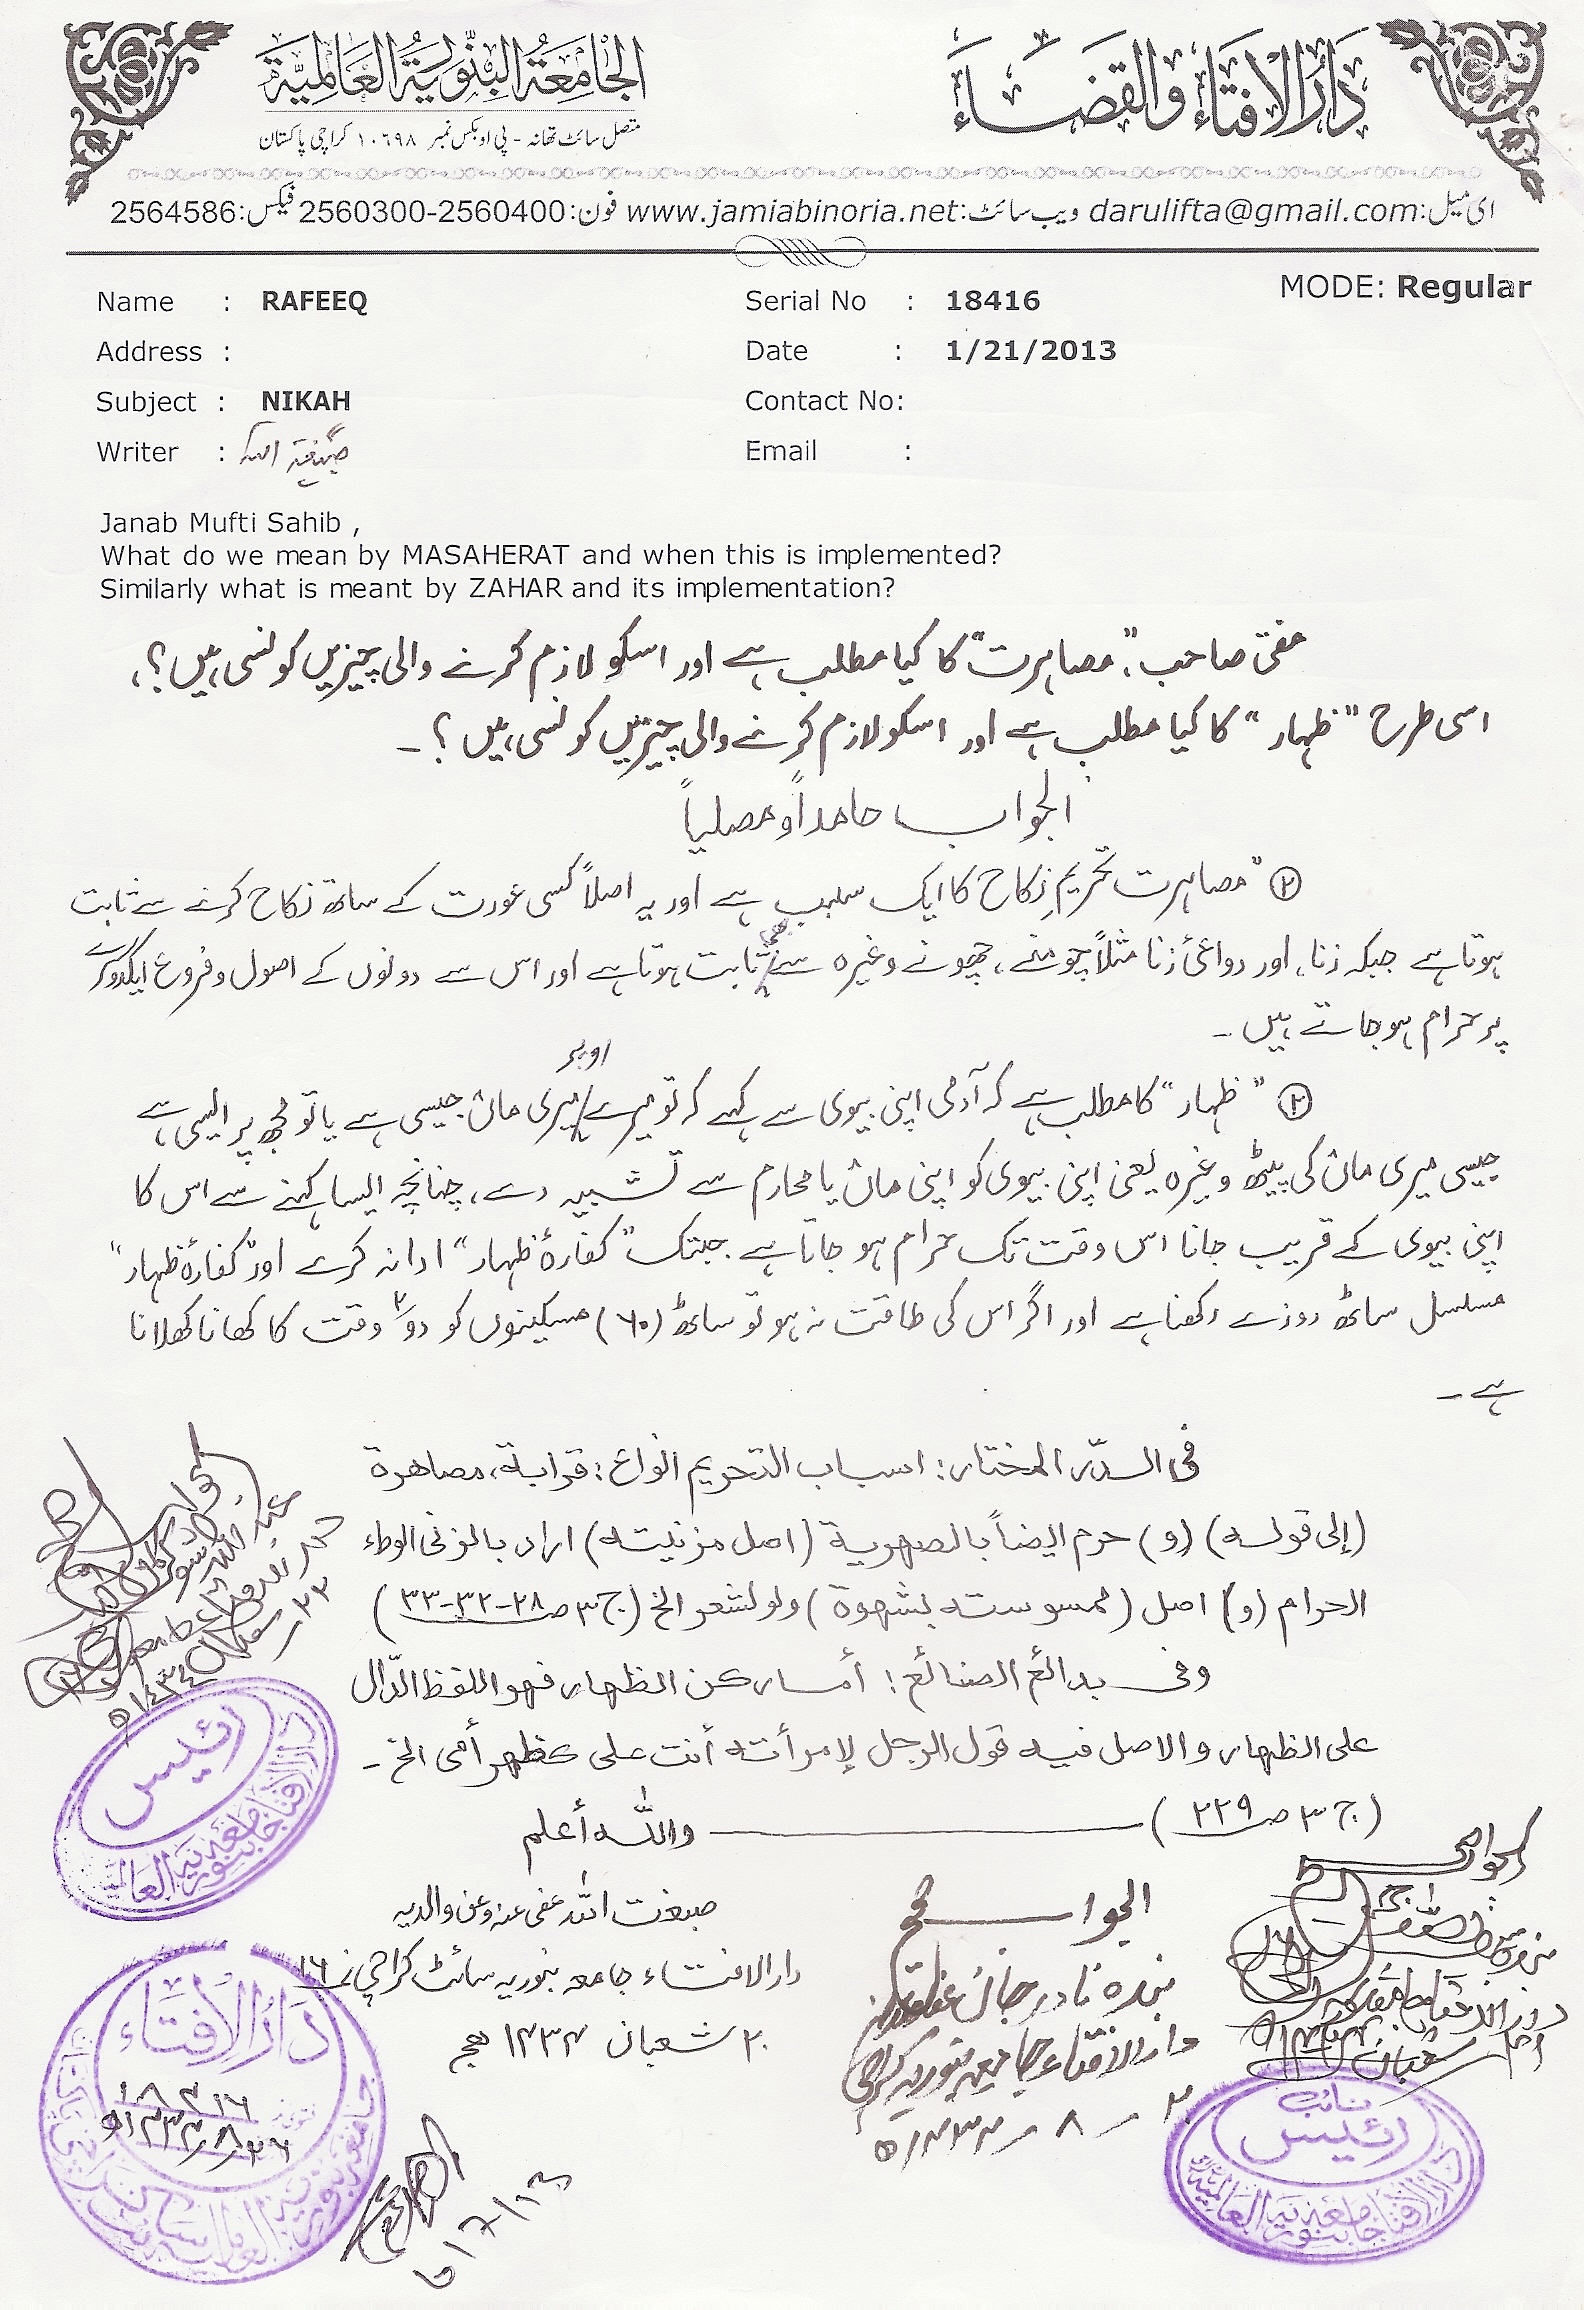 دَارُالْاِفْتَاءِ وَالقَضَاءَ
الجَامِعَةُ البِنَّوْرِيَّةُ العَالَمِيَّة
متصل سائٹ تھانہ - پی او بکس نمبر ۱۰۶۹۸ کراچی پاکستان
ای میل:darulifta@gmail.com ویب سائٹ:www.jamiabinoria.net فون:2560300-2560400 فیکس:2564586
MODE: Regular
Name : RAFEEQ Serial No : 18416
Address : Date : 1/21/2013
Subject : NIKAH Contact No:
Writer : صبغة اللہ Email :
Janab Mufti Sahib ,
What do we mean by MASAHERAT and when this is implemented?
Similarly what is meant by ZAHAR and its implementation?
مفتی صاحب، "مصاہرت" کا کیا مطلب ہے اور اسکو لازم کرنے والی چیزیں کونسی ہیں؟،
اسی طرح "ظہار" کا کیا مطلب ہے اور اسکو لازم کرنے والی چیزیں کونسی ہیں؟۔
الجواب حامداً ومصلیاً
"مصاہرت تحریمِ نکاح کا ایک سبب ہے اور یہ اصلاً کسی عورت کے ساتھ نکاح کرنے سے ثابت
ہوتا ہے جبکہ زنا، اور دواعیٔ زنا مثلاً چومنے، چھونے وغیرہ سے بھی ثابت ہوتا ہے اور اس سے دونوں کے اصول و فروع ایکدوسرے
پر حرام ہوجاتے ہیں۔
② "ظہار" کا مطلب ہے کہ آدمی اپنی بیوی سے کہے کہ تو میرے اوپر میری ماں جیسی ہے یا تو مجھ پر ایسی ہے
جیسی میری ماں کی پیٹھ وغیرہ یعنی اپنی بیوی کو اپنی ماں یا محارم سے تشبیہ دے، چنانچہ ایسا کہنے سے اس کا
اپنی بیوی کے قریب جانا اس وقت تک حرام ہو جاتا ہے جبتک "کفارۂ ظہار" ادا نہ کرے اور "کفارۂ ظہار"
مسلسل ساٹھ روزے رکھنا ہے اور اگر اس کی طاقت نہ ہو تو ساٹھ (۶۰) مسکینوں کو دو ۲ وقت کا کھانا کھلانا
ہے۔
فی الدّر المختار: اسباب التحریم انواع: قرابة، مصاهرة
(إلی قوله) (و) حرم ایضاً بالصهرية (اصل مزنیته) اراد بالزنی الوطء
الحرام (و) اصل (ممسوسته بشهوة) ولو لشعر الخ (ج ۳ صـ ۲۸-۳۲-۳۳)
وفی بدائع الصنائع: أما رکن الظهار فهو اللفظ الدّال
علی الظهار والاصل فیه قول الرجل لإمرأته أنت علی کظهر أمی الخ۔
(ج ۳ صـ ۲۲۹) واللّٰه أعلم
صبغت اللّٰہ عفی عنہ وعن والدیہ
دارالافتاء جامعہ بنوریہ سائٹ کراچی نمبر ۱۶
۲۰ شعبان ۱۴۳۴ ھج
الجواب صحیح
بندہ نادر جان
دارالافتاء جامعہ بنوریہ کراچی
۱۴۳۴ھ
الجواب صحیح
رئیس
دارالافتاء جامعہ بنوریہ العالمیہ
دَارُالْاِفْتَاء
۱۸۴۱۶
نائب
رئیس
دارالافتاء جامعہ بنوریہ العالمیہ